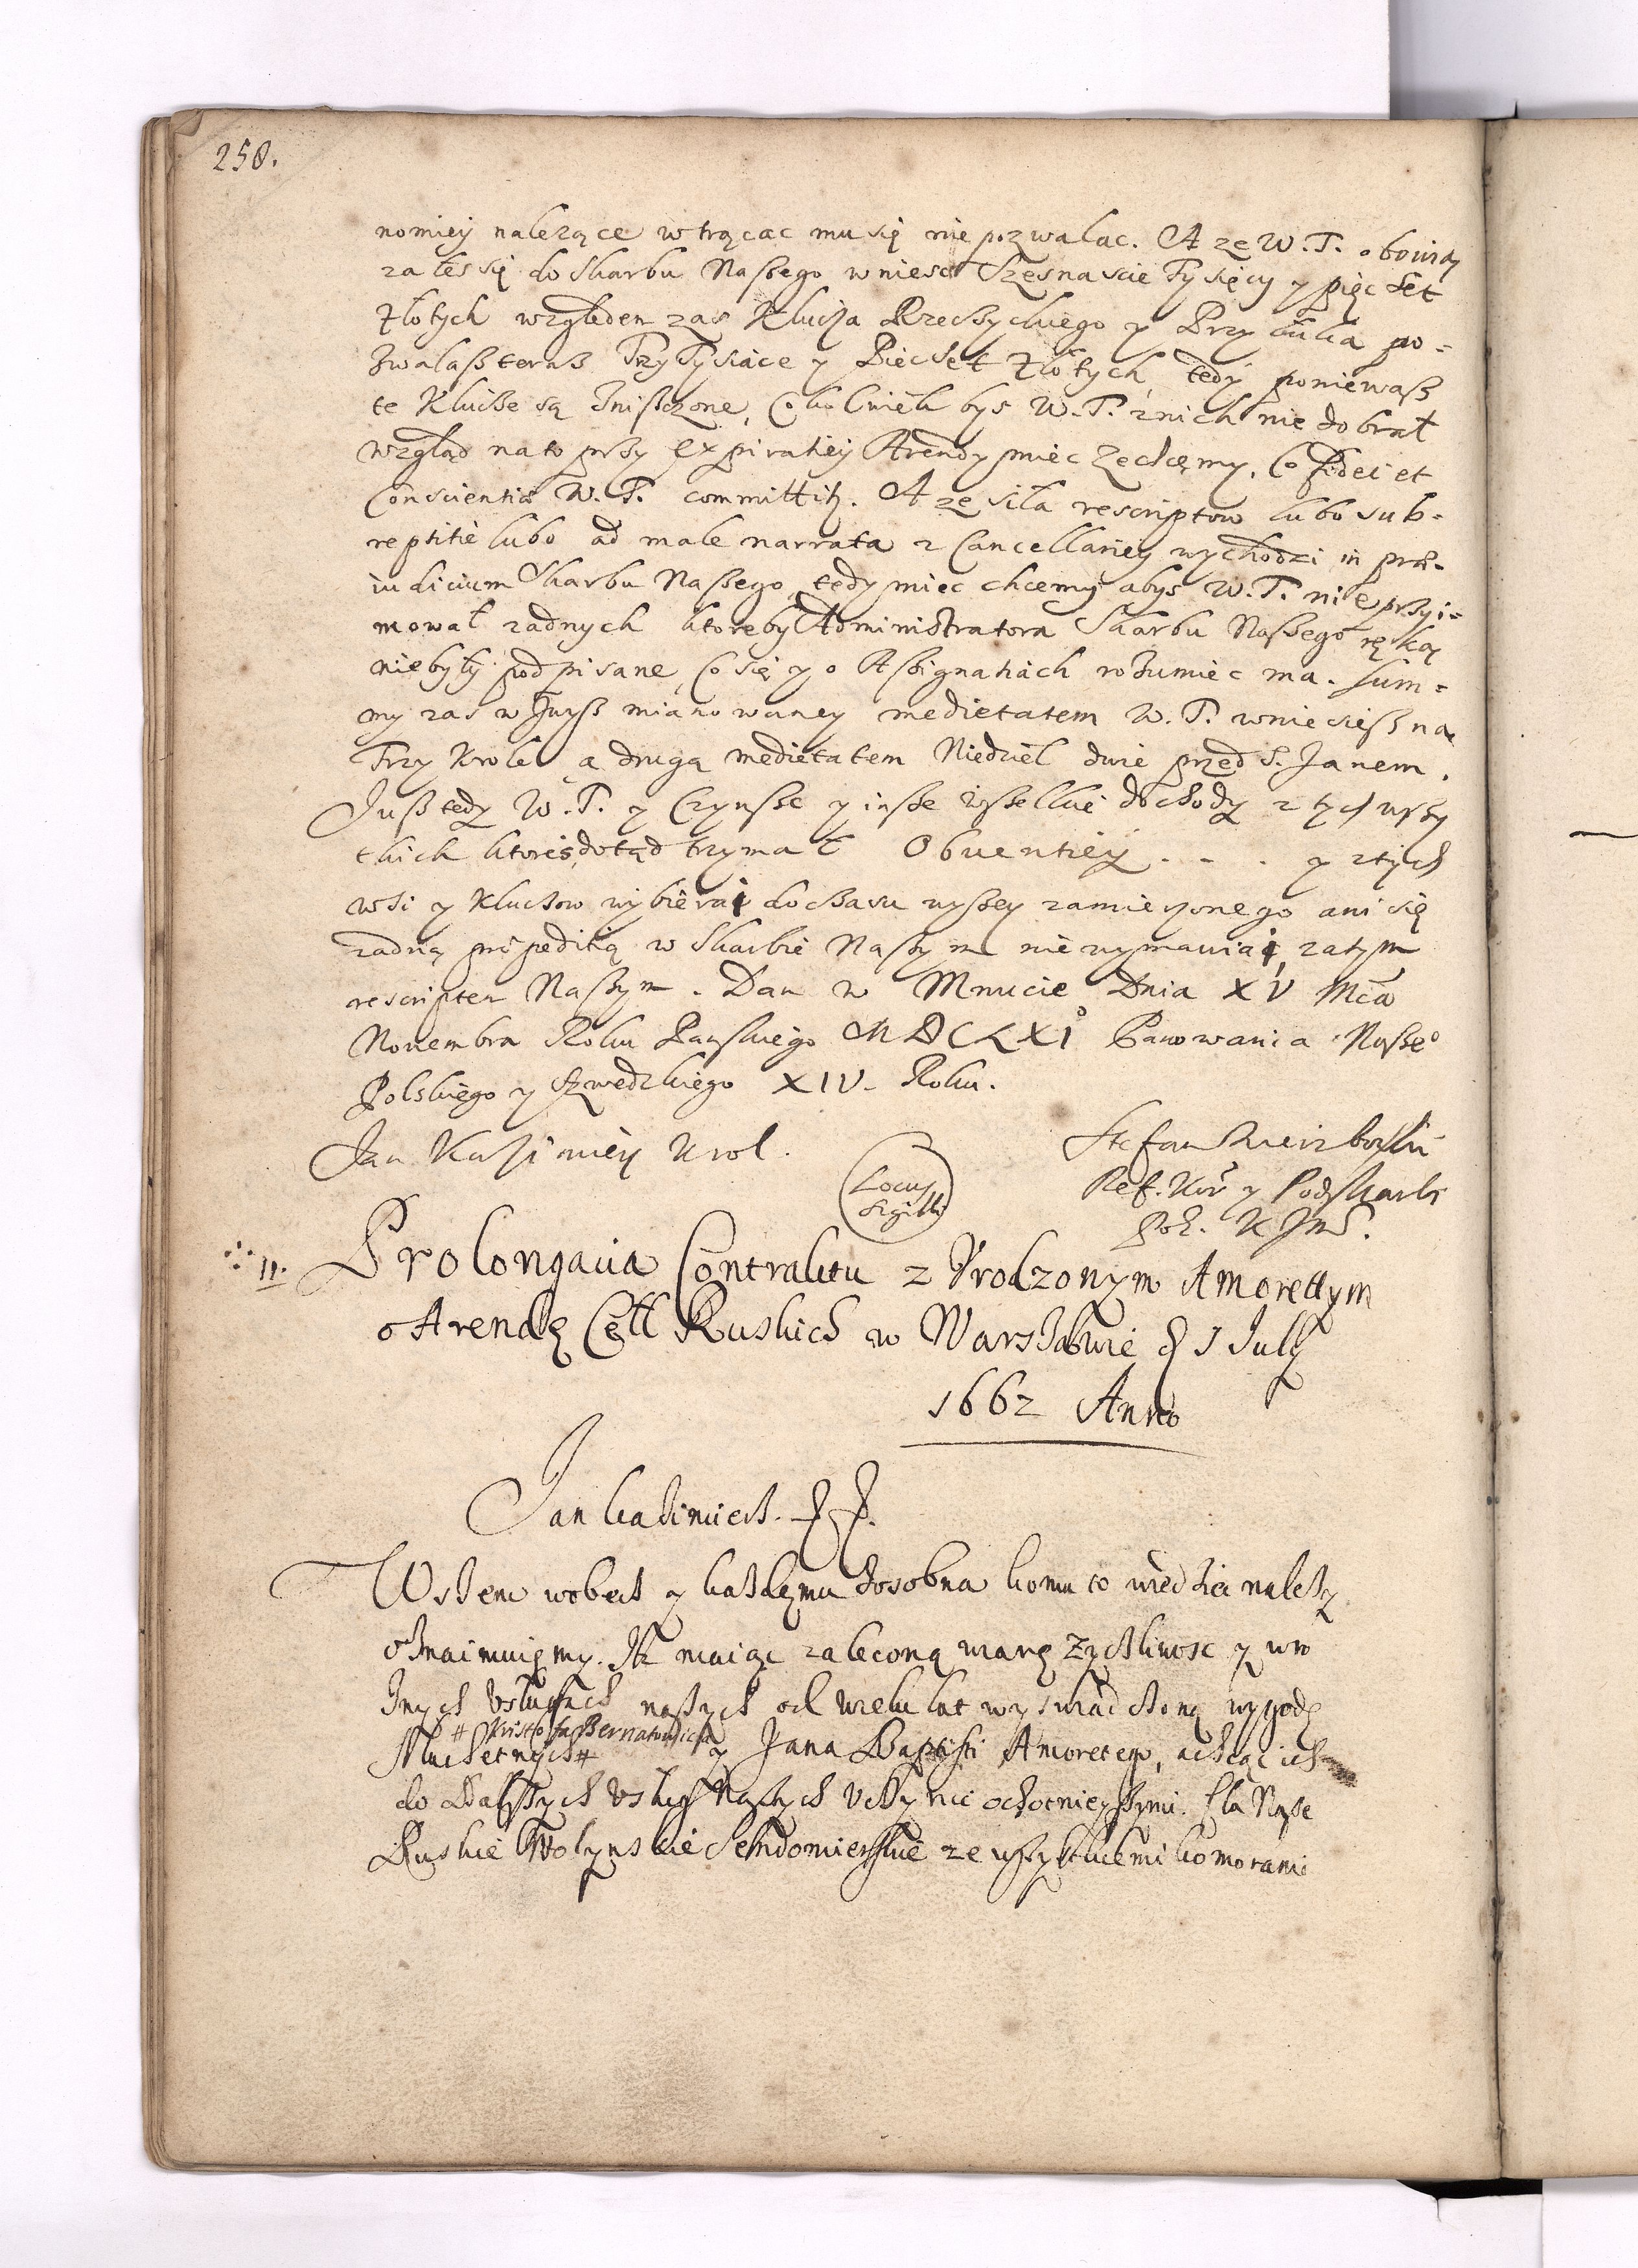 258.
nomiey należące wtrącac mu się nie pozwalac. A ze W. T. obowią
załes się do Skarbu Naszego wniesc Szesnascie Tysięcy y pięc set
złotych względem zas Klucza Rzeczyckiego y Przy po-
zwalasz teraz Trzy Tysiące y Piecset złotych, tedy poniewasz
te Klucze są zniszczone, Cokolwiek bys W. T. z nich nie dobrał
wzgląd na to przy Expiratiey Arendy miec zechcęmy, Co fidei et
Conscientiæ W. T. committitur. A ze siła rescriptow lubo sub-
reptitie lubo ad male narrata z Cancellariey wychodzi in præ-
iudicium Skarbu Naszego, tedy miec chcemy abys W. T. nie przyi-
mował zadnych ktoreby Administratora Skarbu Naszego ręką
niebyły podpisane, Co się y o Assignatiach rozumiec ma. Sum-
my zas w wysz mianowaney medietatem W. T. wniesiesz na
Trzy Krole, a drugą medietatem Niedziel dwie przed S. Janem.
Jusz tedy W. T. y Czynsze y insze wszelkie dochody z tych wszy
tkich ktoreś dotąd trzymał Obventiey . - . y z tych
wsi y Kluczow wybierai do czasu wyszey zamierzonego ani się
zadną præpeditią w Skarbie Naszym nie wymawiai, za tym
rescriptem Naszym. Dan w Mnucie Dnia XV Mca
Nouembra Roku Panskiego MDCLXI° Panowania Nasze°
Polskiego y Szwedzkiego XIV. Roku.
Jan Kazimierz Krol.
Locus
Sigilli
Stefan
Ref. Kor y Podskarbi
K JMć.
11. Prolongacia Contraktu z Vrodzonym Amorettym
o Arendę Cell Ruskich w Warszawie d 1 July
1662 Anno
Jan Kazimierz.
Wszem wobecz y kazdęmu zosobna komu to wiedziec nalezy
oznaimuięmy. Jz maiąc zaleconą wiarę zyczliwosc y w ro
znych vsługach naszych od wielu lat wyswiadczoną wygodę
# Kristofa Bernatowicza
Szlachetnych # y Jana Baptisti Amoretego, a chcąc ich
do dalszych vsług Naszych vczynic ochotnieyszymi. Cła Nasze
Ruskie Wołynskie Sendomierskie ze wszytkiemi komorami